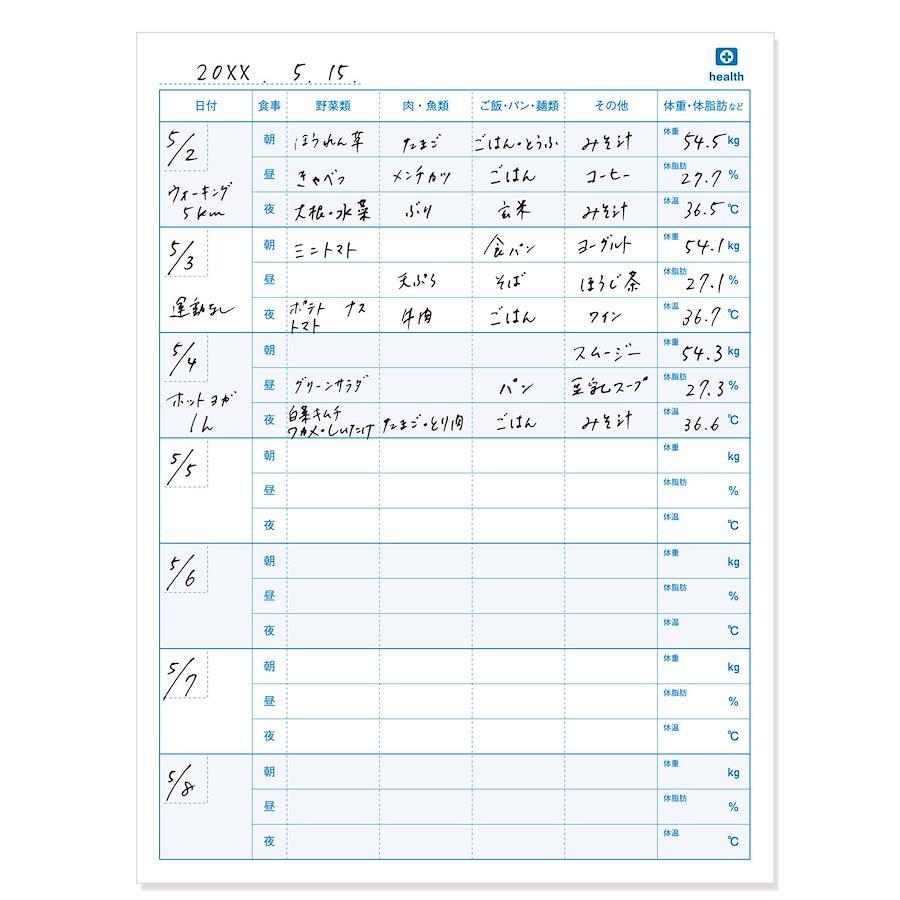 20XX. 5. 15.
health
日付 食事 野菜類 肉・魚類 ご飯・パン・麺類 その他 体重・体脂肪など
5/2 朝 ほうれん草 たまご ごはん・とうふ みそ汁 体重 54.5 kg
昼 きゃべつ メンチカツ ごはん コーヒー 体脂肪 27.7 %
ウォーキング 5km 夜 大根・水菜 ぶり 玄米 みそ汁 体温 36.5 ℃
5/3 朝 ミニトマト 食パン ヨーグルト 体重 54.1 kg
昼 天ぷら そば ほうじ茶 体脂肪 27.1 %
運動なし 夜 ポテト ナス トマト 牛肉 ごはん ワイン 体温 36.7 ℃
5/4 朝 スムージー 体重 54.3 kg
昼 グリーンサラダ パン 豆乳スープ 体脂肪 27.3 %
ホットヨガ 1h 夜 白菜キムチ ワカメ・しいたけ たまご・とり肉 ごはん みそ汁 体温 36.6 ℃
5/5 朝 体重 kg
昼 体脂肪 %
夜 体温 ℃
5/6 朝 体重 kg
昼 体脂肪 %
夜 体温 ℃
5/7 朝 体重 kg
昼 体脂肪 %
夜 体温 ℃
5/8 朝 体重 kg
昼 体脂肪 %
夜 体温 ℃